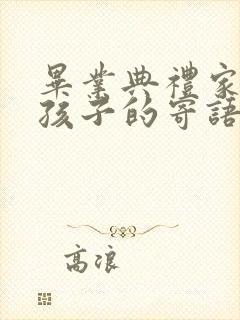 畢業典禮家
孩子的寄語
高浪